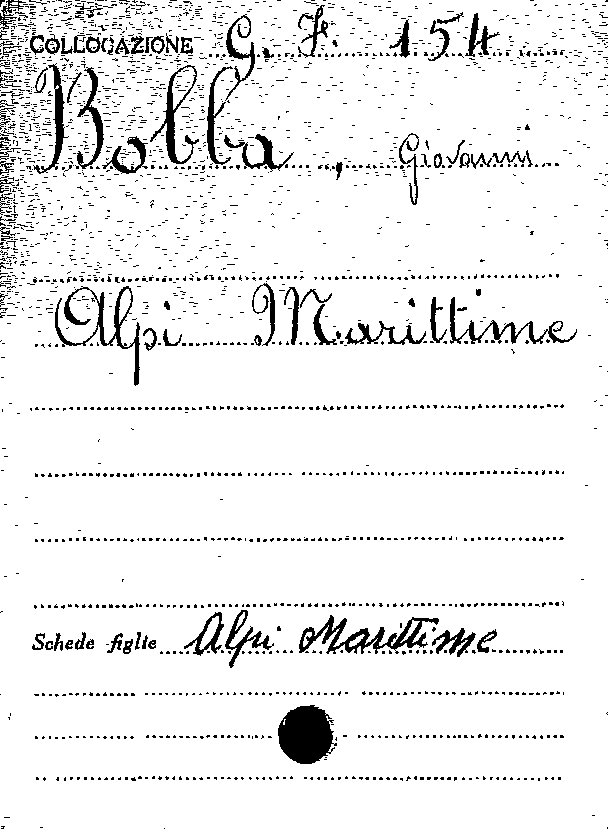 COLLOCAZIONE G. F. 154
Bobba, Giovanni
Alpi Marittime
Schede figlie Alpi Marittime